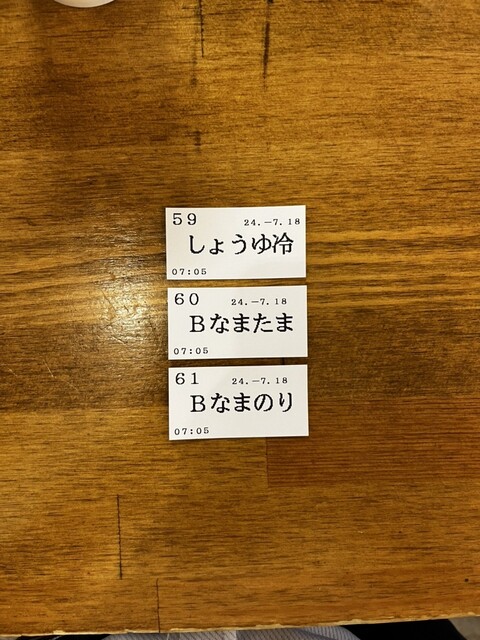 59 24.-7.18
しょうゆ冷
07:05
60 24.-7.18
Bなまたま
07:05
61 24.-7.18
Bなまのり
07:05